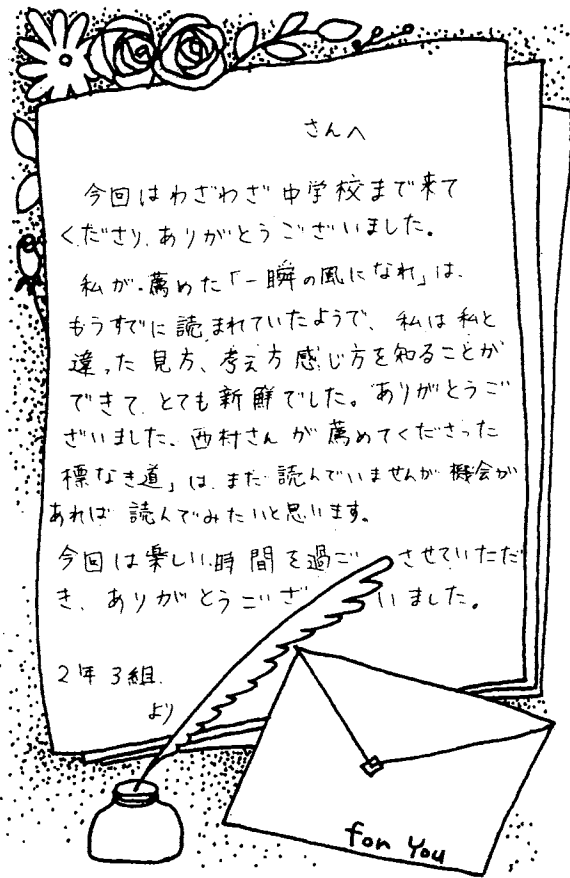 さんへ
今回はわざわざ中学校まで来て
くださり、ありがとうございました。
私が薦めた「一瞬の風になれ」は、
もうすでに読まれていたようで、私は私と
違った見方、考え方感じ方を知ることが
できて、とても新鮮でした。ありがとうご
ざいました、西村さんが薦めてくださった
標なき道」は、まだ読んでいませんが機会が
あれば読んでみたいと思います。
今回は楽しい時間を過ごさせていただ
き、ありがとうございました。
2年3組
より
for You